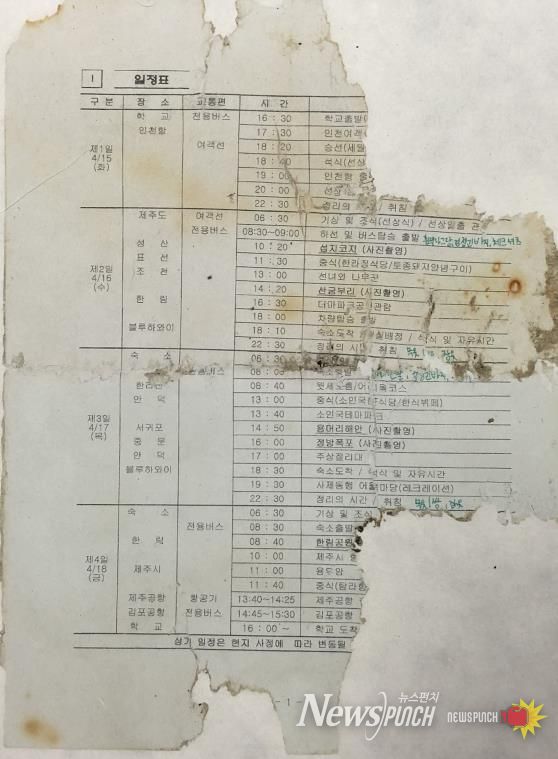 I 일정표
구 분 장 소 교통편 시 간
학 교 전용버스 16 : 30 학교출발
인천항 17 : 30 인천여객
제1일 4/15 (화)
여객선 18 : 20 승선(세월
18 : 40 석식(선상
19 : 00 인천항
20 : 00 선상
22 : 30 정리의 / 취침
제주도 여객선 06 : 30 기상 및 조식(선상식) / 선상일출 관
전용버스 08:30~09:00 하선 및 버스탑승 출발
성 산 10 : 20 섭지코지 (사진촬영)
제2일 4/16 (수)
표 선 11 : 30 중식(한라정식당/토종돼지양념구이)
조 천 13 : 00 선녀와 나무꾼
14 : 20 산굼부리 (사진촬영)
한 림 16 : 30 더마파크공연관람
18 : 00 차량탑승 출발
블루하와이 18 : 10 숙소도착 / 실배정 / 석식 및 자유시간
22 : 30 정리의 시간 / 취침
숙 소 06 : 30
08 : 00 숙소출발
한라산 08 : 40 윗세오름/어리목코스
안 덕 13 : 00 중식(소인국 식당/한식뷔페)
제3일 4/17 (목)
13 : 40 소인국테마파크
서귀포 14 : 50 용머리해안 (사진촬영)
중 문 16 : 00 정방폭포 (사진촬영)
안 덕 17 : 00 주상절리대
블루하와이 18 : 30 숙소도착 / 석식 및 자유시간
19 : 30 사제동행 어울 마당(레크레이션)
22 : 30 정리의 시간 / 취침
숙 소 06 : 30 기상 및 조식
전용버스 08 : 30 숙소출발
한 림 08 : 40 한림공원
제4일 4/18 (금)
10 : 00 제주시
제주시 11 : 00 용두암
11 : 40 중식(탐라
제주공항 항공기 13:40~14:25 제주공항
김포공항 전용버스 14:45~15:30 김포공항
학 교 16 : 00 ~ 학교 도착
상기 일정은 현지 사정에 따라 변동될
- 1
뉴스펀치
NewsPUNCH NEWSPUNCH